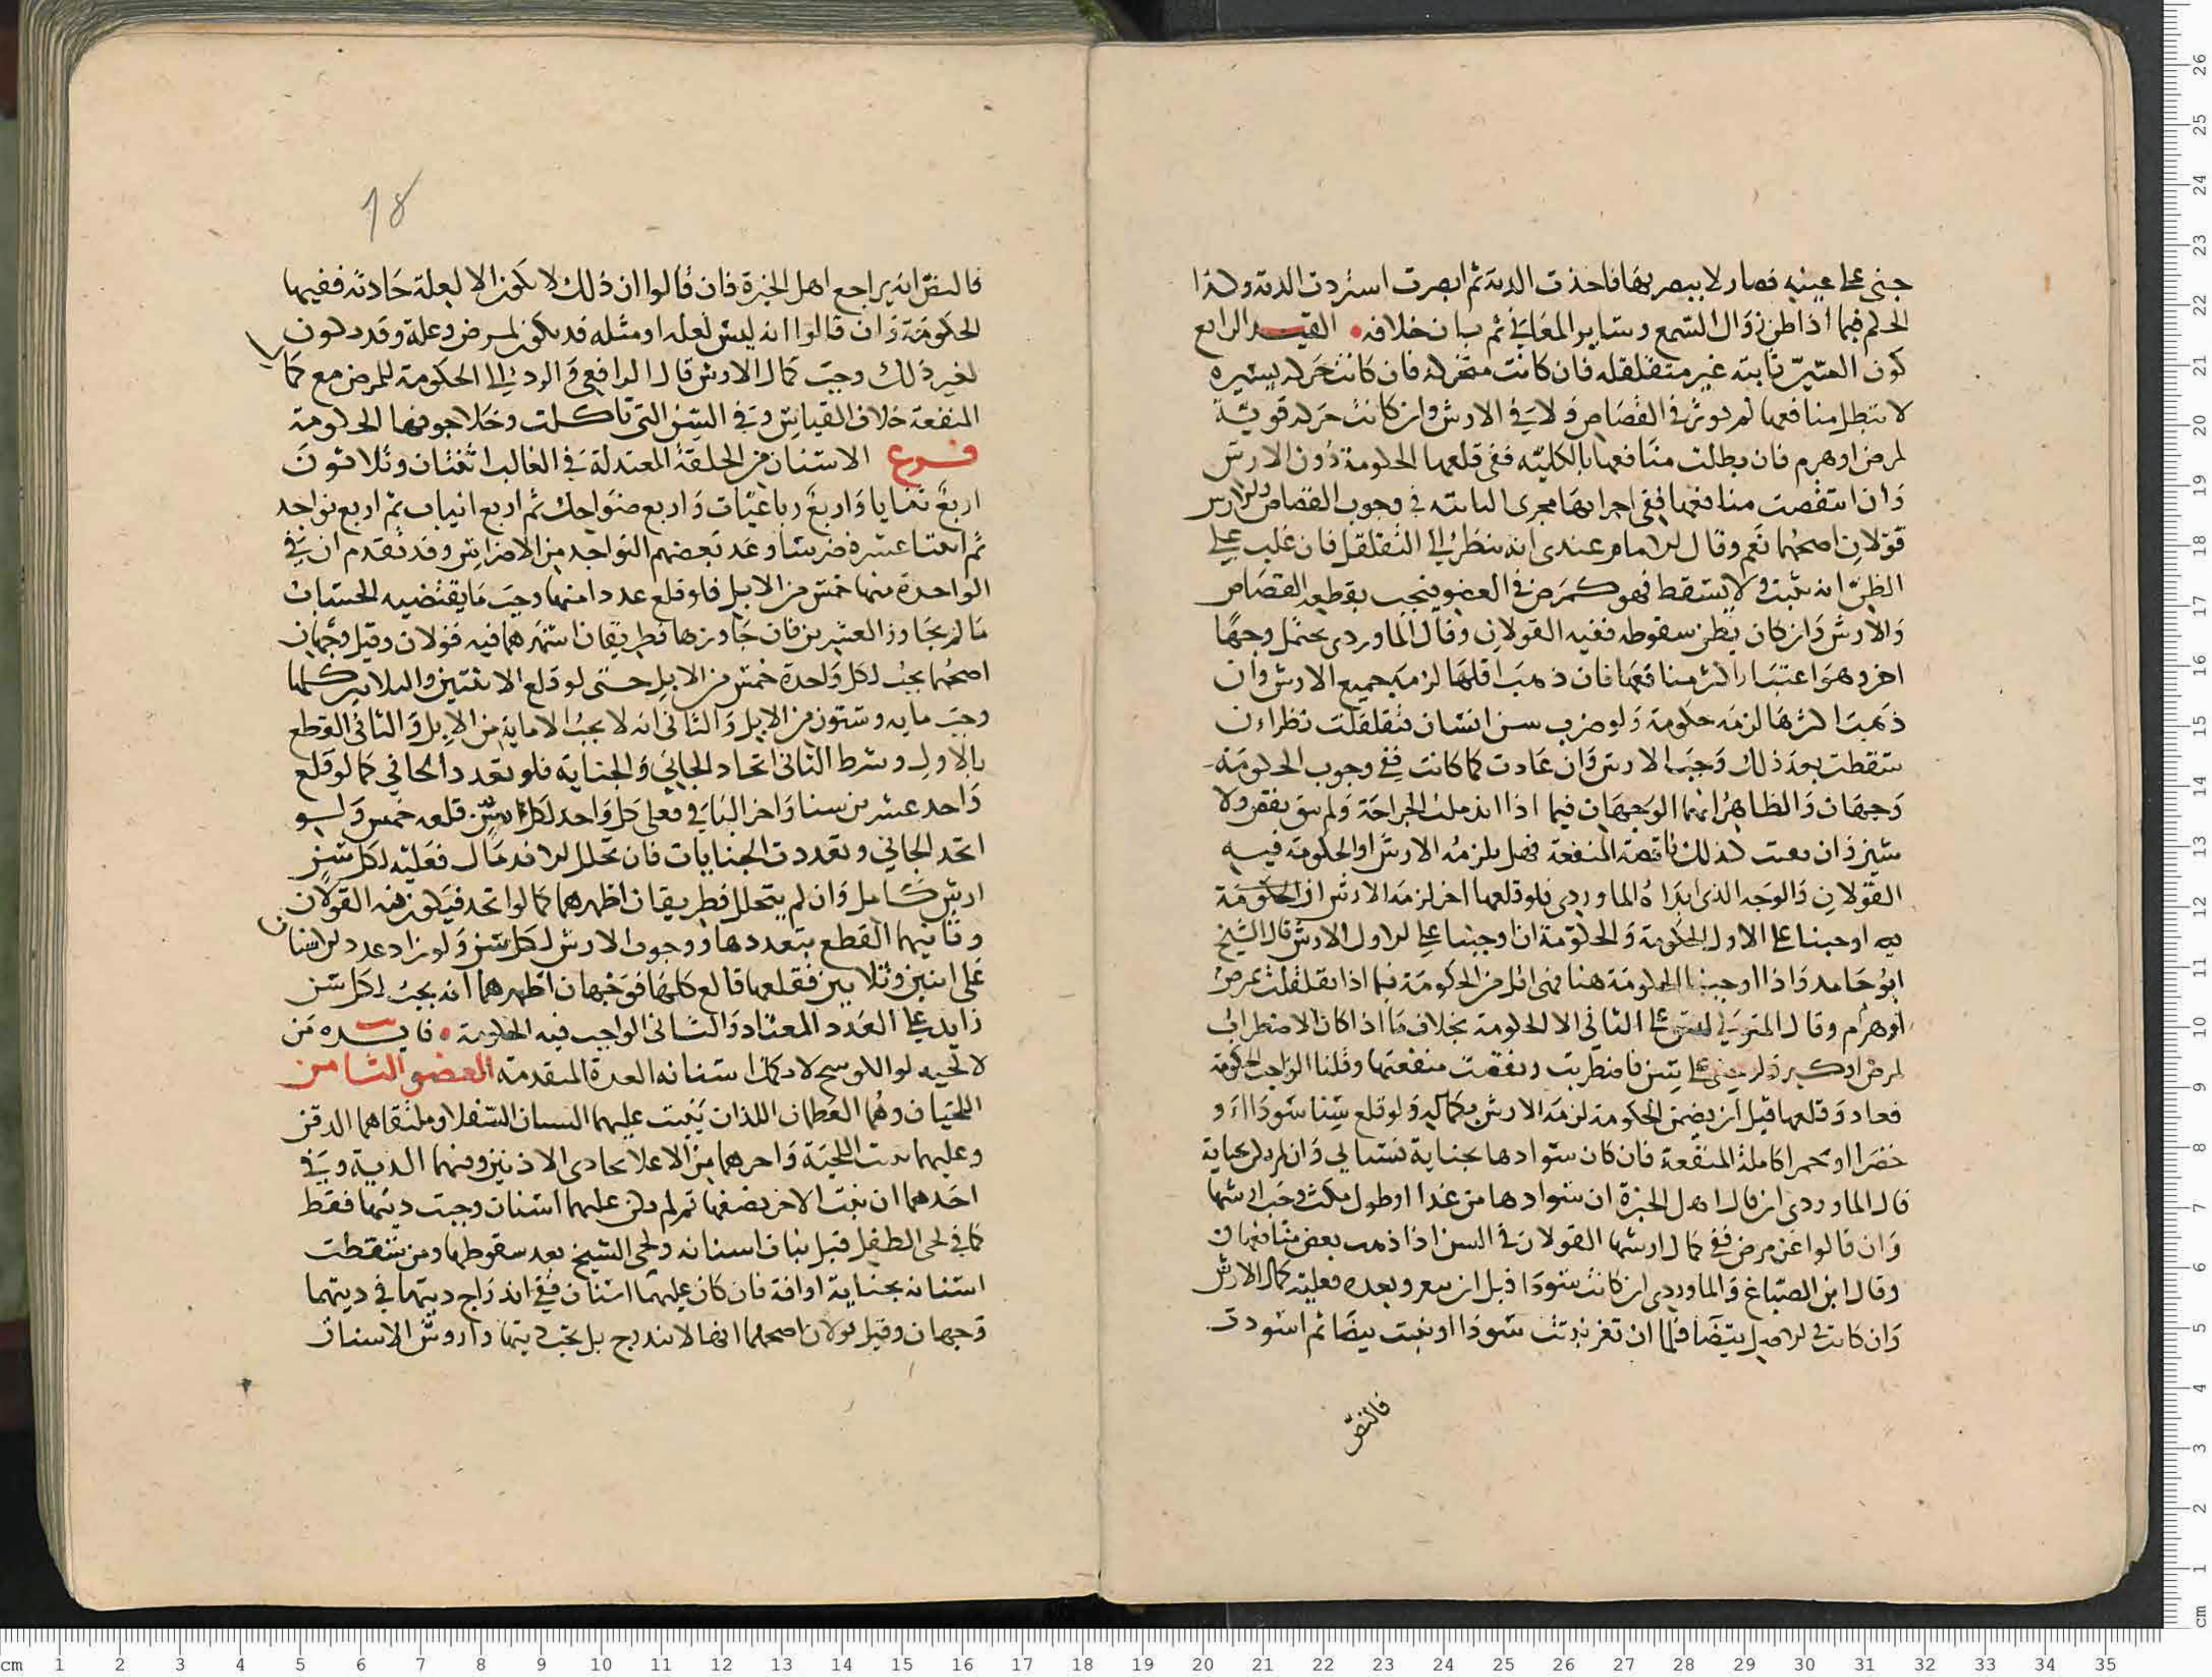 جنى على عينيه فصار لا يبصر بها فاخذت الدية ثم ابصرت استردت الدية وكذا
الحكم فيما اذا ظن زوال السمع وساير المعاني ثم بان خلافه • القيد الرابع
كون السن ثابتة غير متقلقلة فان كانت متحركة فان كانت حركة يسيرة
لا تبطل منافعها لم يوثر في القصاص ولا في الارش وان كانت حركة قوية
لمرض او هرم فان بطلت منافعها بالكلية ففي قلعها الحكومة دون الارش
وان انتقصت منافعها ففي اجرايها مجرى الثابتة في وجوب القصاص والارش
قولان اصحهما نعم وقال الامام عندي انه ينظر الى التقلقل فان غلب على
الظن انه يثبت ولا يسقط فهو كمرض في العضو فيجب بقطعه القصاص
والارش وان كان يظن سقوطه ففيه القولان وقال الماوردي يحتمل وجها
اخر وهو اعتبار اكثر منافعها فان ذهب اقلها لزمه جميع الارش وان
ذهب اكثرها لزمه حكومة ولو ضرب سن انسان فتقلقلت نظر ان
سقطت بعد ذلك وجب الارش وان عادت كما كانت ففي وجوب الحكومة
وجهان والظاهر انهما الوجهان فيما اذا اندملت الجراحة ولم يبق نقص ولا
شين وان بقيت كذلك ناقصة المنفعة فهل يلزمه الارش او الحكومة فيه
القولان والوجه الذي ابداه الماوردي فلو قلعها اخر لزمه الارش ان الحكومة
به اوجبنا على الاول الحكومة والحكومة ان اوجبنا على الاول الارش قال الشيخ
ابو حامد واذا اوجبنا الحكومة هنا فهي اقل من الحكومة فيما اذا تقلقلت بمرض
او هرم وقال المتولي على الثاني الا الحكومة بخلاف ما اذا كان الاضطراب
لمرض او كبر ولو جنى على سن فاضطربت ونقصت منفعتها وقلنا الواجب الحكومة
فعاد وقلعها قبل ان يضمن الحكومة لزمه الارش بكماله ولو قلع سنا سودا او
خضرا او حمرا كاملة المنفعة فان كان سوادها بجناية فسياتي وان لم يكن بجناية
قال الماوردي ان قال اهل الخبرة ان سوادها من غذا او طول مكث وجب ارشها
وان قالوا عن مرض ففي كمال ارشها القولان في السن اذا ذهب بعض منافعها
وقال ابن الصباغ والماوردي ان كانت سودا قبل ان يثغر وبعده فعليه كمال الارش
وان كانت في الاصل بيضا فلما ان ثغر نبتت سودا او نبتت بيضا ثم اسودت
فالنص
18
فالنص انه يراجع اهل الخبرة فان قالوا ان ذلك لا يكون الا لعلة حادثة ففيها
الحكومة وان قالوا انه ليس لعلة او مثله قد يكون لمرض وعلة وقد يكون
لغير ذلك وجب كمال الارش قال الرافعي والرد الى الحكومة للمرض مع كما
المنفعة خلاف القياس وفي السن التي تاكلت وخلا جوفها الحكومة
فرع الاسنان من الخلقة المعتدلة في الغالب اثنتان وثلاثون
اربع ثنايا واربع رباعيات واربع ضواحك ثم اربع انياب ثم اربع نواجد
ثم اثنتا عشرة ضرسا وعد بعضهم النواجد من الاضراس وقد تقدم ان في
الواحدة منها خمس من الابل فلو قلع عددا منها وجب ما يقتضيه الحساب
ما لم يجاوز العشرين فان جاوزها فطريقان اشهرهما فيه قولان وقيل وجهان
اصحهما يجب لكل واحدة خمس من الابل حتى لو قلع الاثنتين والثلاثين كلها
وجب مايه وستون من الابل والثاني انه لا يجب الا ماية من الابل والثاني القطع
بالاول وشرط الثاني اتحاد الجاني والجناية فلو تعدد الجاني كما لو قلع
واحد عشرين سنا واخر الباقي فعلى كل واحد لكل سن قلعه خمس ولو
اتحد الجاني وتعددت الجنايات فان تخلل الاندمال فعليه لكل سن
ارش كامل وان لم يتخلل فطريقان اظهرهما كما لو اتحد فيكون فيه القولان
وثانيهما القطع بتعددها ووجوب الارش لكل سن ولو زاد عدد الاسنان
على اثنين وثلاثين فقلعها قالع كلها فوجهان اظهرهما انه يجب لكل سن
زايد على العدد المعتاد والثاني الواجب فيه الحكومة • فايدة من
لا لحيه له او الكوسج لا يكمل اسنانه العدة المتقدمة العضو الثامن
اللحيان وهما العظمان اللذان ينبت عليهما الاسنان السفلا وملتقاهما الدقن
وعليهما نبت اللحية واخرهما من الاعلا يحادي الاذنين وفيهما الدية وفي
احدهما ان ثبت الاخر نصفها ثم لم يكن عليهما اسنان وجبت ديتهما فقط
كما في لحى الطفل قبل نبات اسنانه ولحى الشيخ بعد سقوطها ومن سقطت
اسنانه بجناية او افة فان كان عليهما اسنان ففي اندراج ديتها في ديتهما
وجهان وقيل قولان اصحهما انها لا تندرج بل يجب ديتها واروش الاسنان